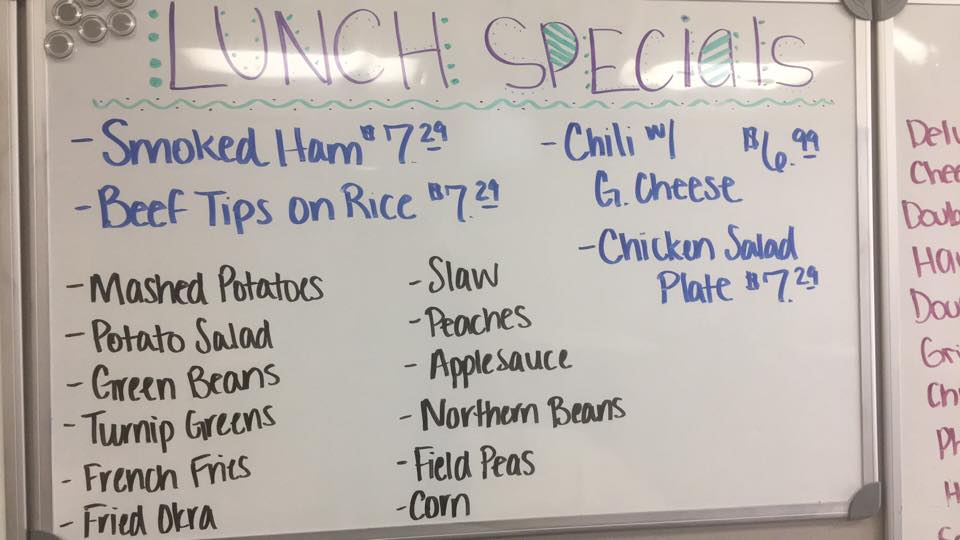 LUNCH SPECIALS
- Smoked Ham $7.29
- Beef Tips on Rice $7.29
- Chili w/ $6.99
G. Cheese
- Chicken Salad
Plate $7.29
- Mashed Potatoes
- Potato Salad
- Green Beans
- Turnip Greens
- French Fries
- Fried Okra
- Slaw
- Peaches
- Applesauce
- Northern Beans
- Field Peas
- Corn